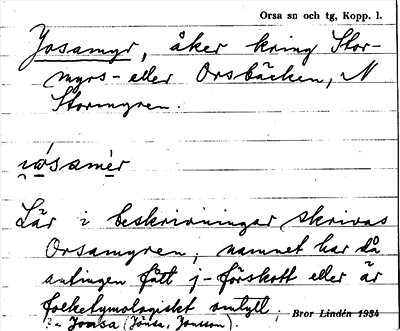 Orsa sn och tg, Kopp. l.
Josamyr, åker kring Stor-
myrs- eller Orsbäcken, N
Stormyren.
Lär i beskrivningar skrivas
Orsamyren; namnet har då
antingen fått j-förskott eller är
folketymologiskt omtytt;
Bror Lindén 1934